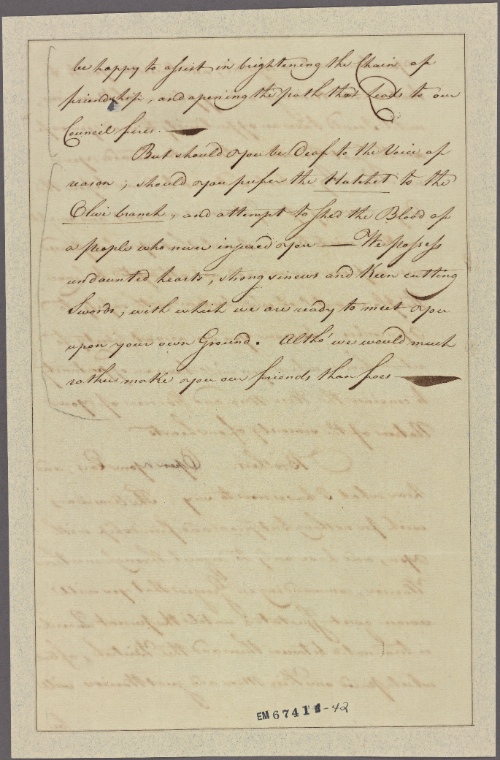 be happy to assist in brightening the Chain of
friendship, and opening the path that Leads to our
Council fires. —
But should you be Deaf to the Voice of
reason, should you prefer the Hatchet to the
Olive branch, and attempt to shed the Blood of
a people who never injured you — We possess
undaunted hearts, strong sinews and Keen cutting
Swords, with which we are ready to meet you
upon your own Ground. Altho' we would much
rather make you our friends than foes —
EM6741-42